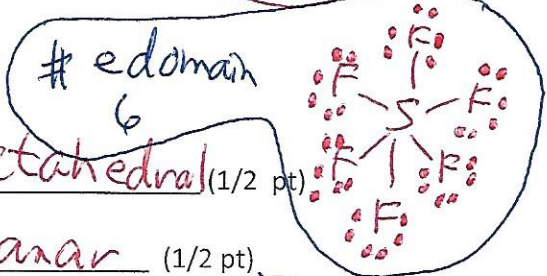 # edomain
6
F
F
F
S
F
F
F
tahedral (1/2 pt)
anar (1/2 pt)